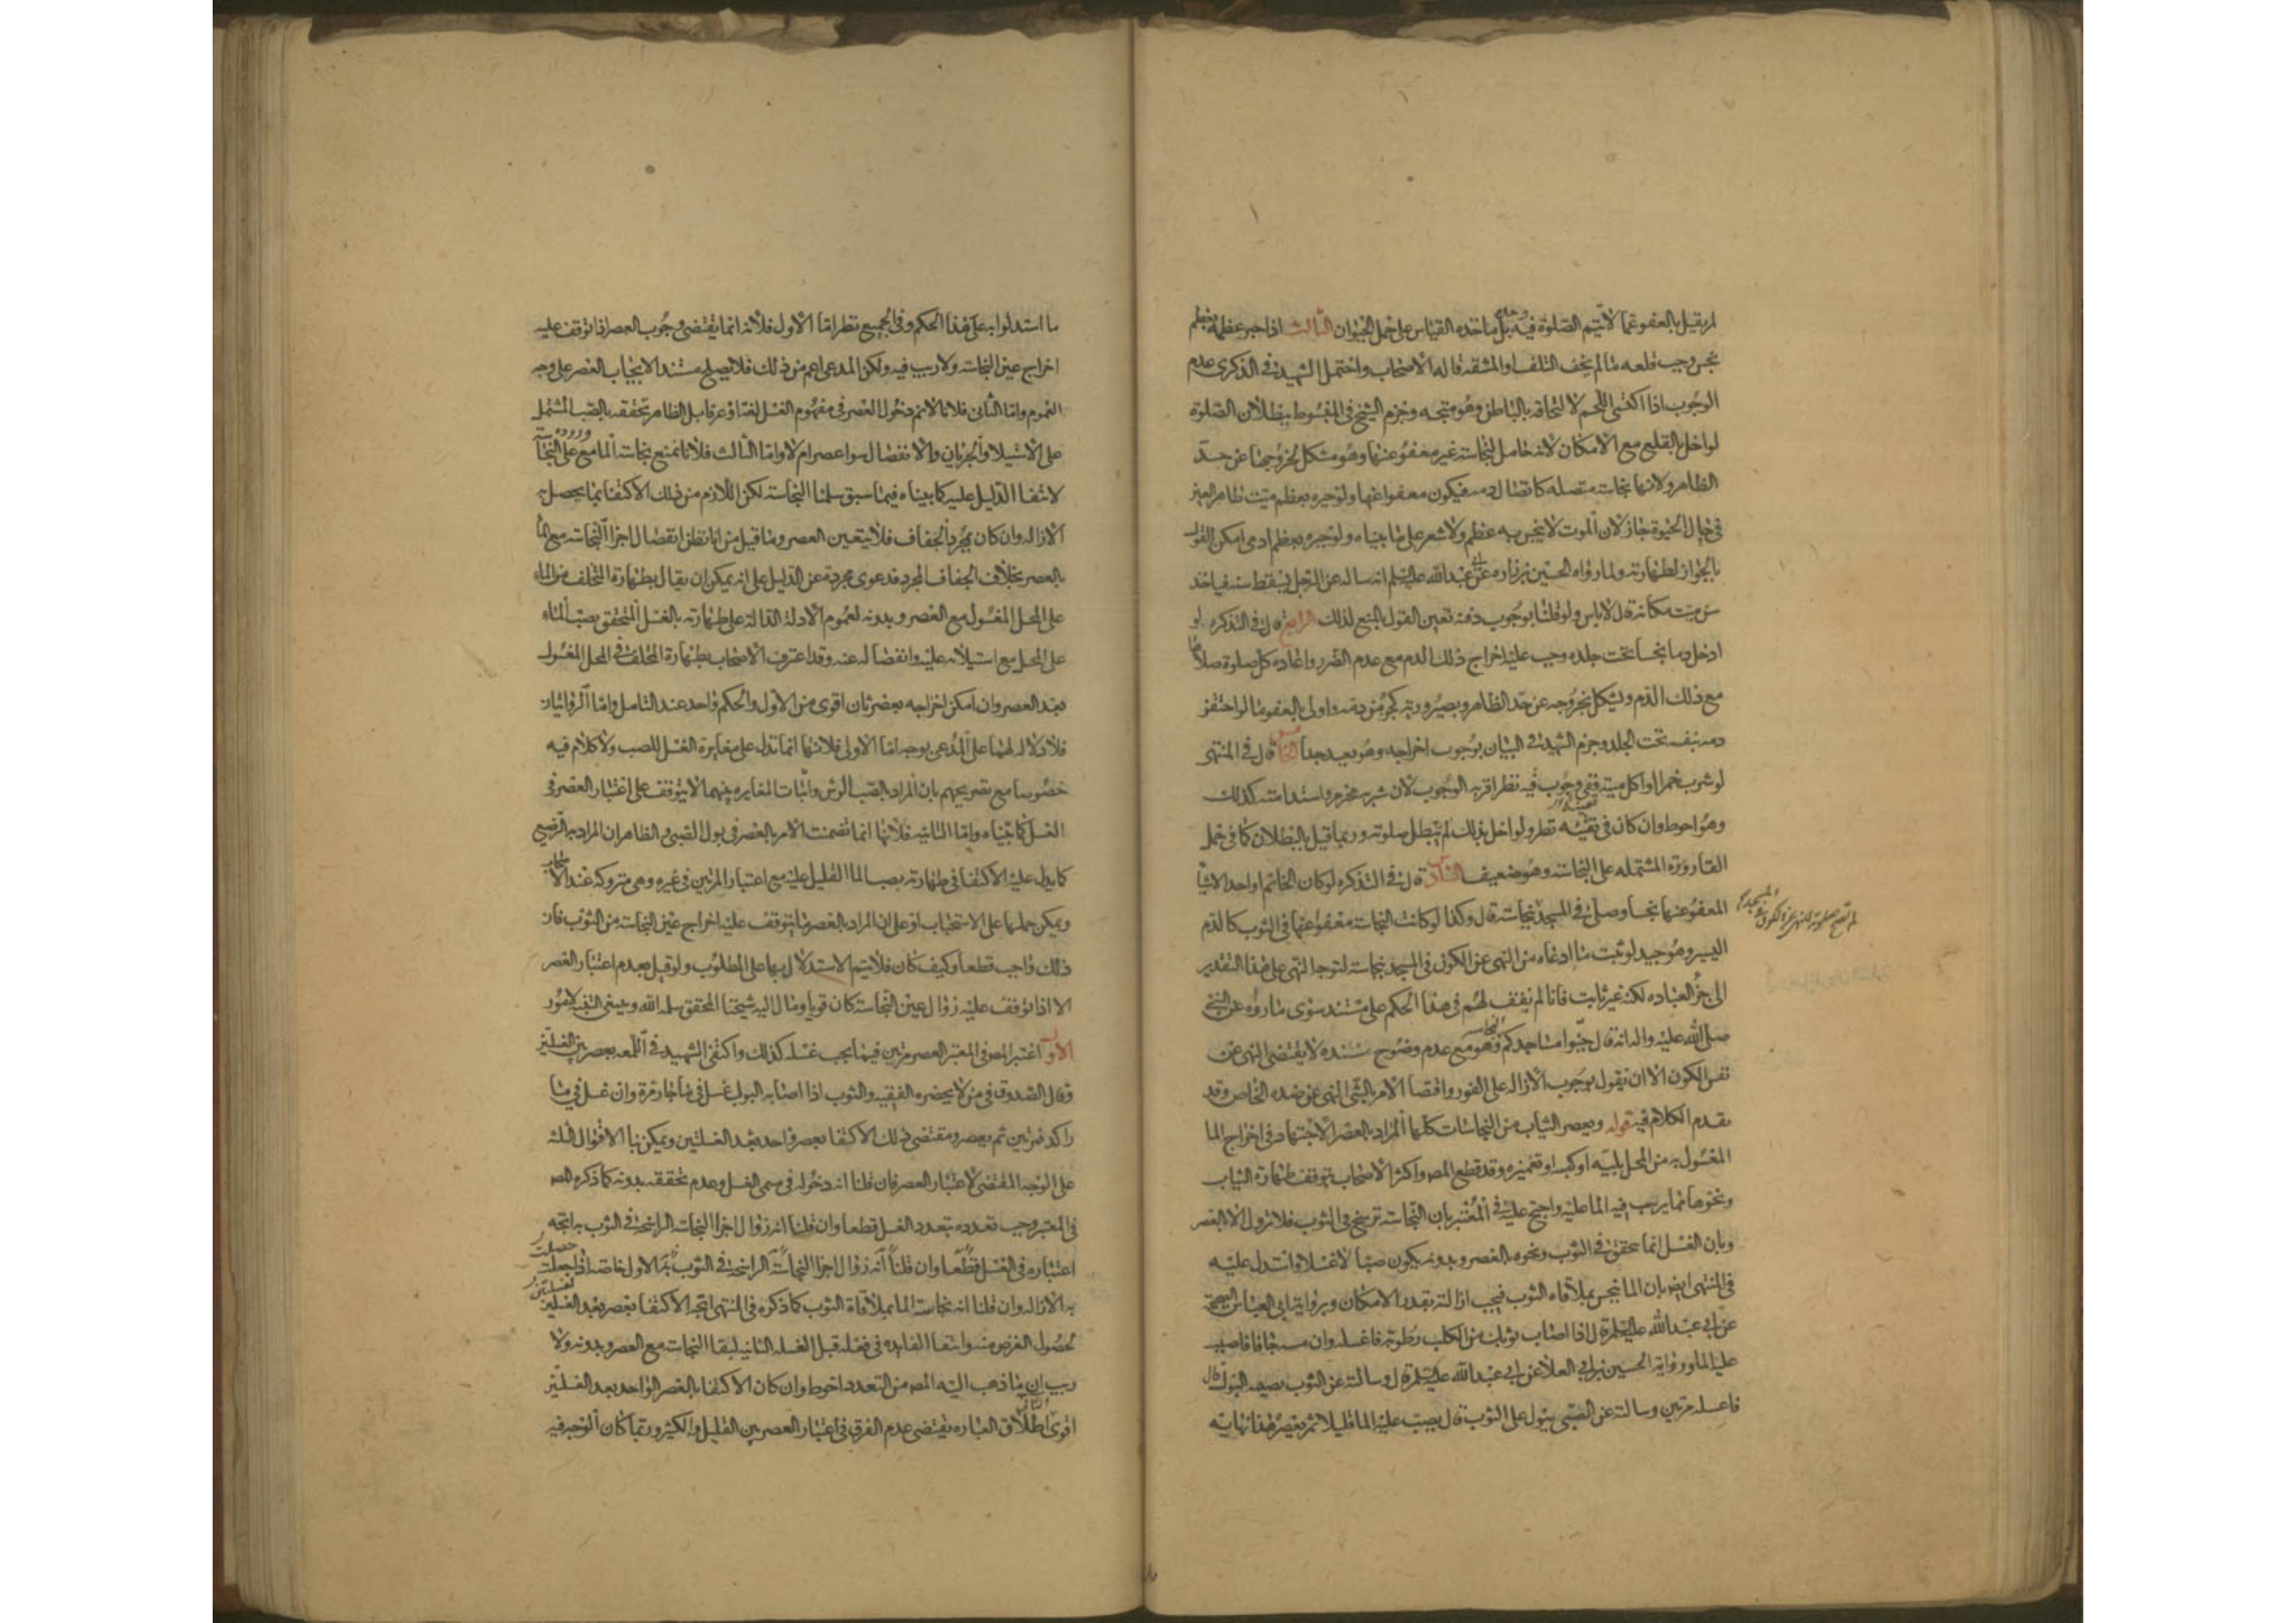 لم نقل بالعفو عما لا يتم الصلوة فيه بل مأخذه القياس على حمل الحيوان الثالث اذا جبر عظمه بعظم
نجس وجب قلعه ما لم يخف التلف او المشقة قاله الاصحاب واحتمل الشهيد في الذكرى عدم
الوجوب اذا اكتسى اللحم لالتحاقه بالباطن وهو متجه وجزم الشيخ في المبسوط ببطلان الصلوة
لو اخل بالقلع مع الامكان لانه حامل لنجاسة غير معفو عنها وهو مشكل لخروجها عن حد
الظاهر ولانها نجاسة متصلة كاتصال دمه فيكون معفوا عنها ولو جبره بعظم ميت طاهر العين
في حال الحيوة جاز لان الموت لا ينجس به عظم ولا شعر على ما بيناه ولو جبره بعظم ادمي امكن القول
بالجواز لطهارته ولما رواه الحسين بن زراره عن ابي عبدالله عليه السلم انه ساله عن الرجل يسقط سنه فياخذ
سن ميت مكانه قال لا باس ولو قلنا بوجوب دفنه تعين القول بالمنع لذلك الرابع قال في التذكره لو
ادخل دما نجسا تحت جلده وجب عليه اخراج ذلك الدم مع عدم الضرر واعاده كل صلوة صلاها
مع ذلك الدم ويشكل بخروجه عن حد الظاهر وبصيرورته كجزء من دمه واولى بالعفو ما لو احتقن
دمه بنفسه تحت الجلد وجزم الشهيد في البيان بوجوب اخراجه وهو بعيد جدا الخامس قال في المنتهى
لو شرب خمرا او اكل ميتة ففي وجوب قيئه نظر اقربه الوجوب لان شربه محرم واستدامته كذلك
وهو احوط وان كان في تعينه نظر ولو اخل بذلك لم تبطل صلوته وربما قيل بالبطلان كما في حمل
القارورة المشتمله على النجاسة وهو ضعيف السادس قال في التذكره لو كان الخاتم او احد الاشيا
المعفو عنها نجسا وصلى في المسجد لم تصح صلوته للنهي عن الكون في المسجد بنجاسة قال وكذا لو كانت النجاسة معفوا عنها في الثوب كالدم
اليسير وهو جيد لو ثبت ما ادعاه من النهي عن الكون في المسجد بنجاسة لتوجه النهي على هذا التقدير
الى جزء العباده لكنه غير ثابت فانا لم نقف لهم في هذا الحكم على مستند سوى ما رووه عن النبي
صلى الله عليه واله انه قال جنبوا مساجدكم النجاسة وهو مع عدم وضوح سنده لا يقتضى النهي عن
نفس الكون الا ان نقول بوجوب الازالة على الفور واقتضا الامر بالشي النهى عن ضده الخاص وقد
تقدم الكلام فيه قوله ويعصر الثياب من النجاسات كلها المراد بالعصر الاجتهاد في اخراج الما
المغسول به من المحل بليه او كبسه او تغميزه وقد قطع المص واكثر الاصحاب بتوقف طهارة الثياب
ونحوها مما يرسب فيه الما عليه واحتج عليه في المعتبر بان النجاسة ترسخ في الثوب فلا تزول الا بالعصر
وبان الغسل انما يتحقق في الثوب ونحوه بالعصر وبدونه يكون صبا لا غسلا واستدل عليه
في المنتهى ايضا بان الما ينجس بملاقاه الثوب فيجب ازالته بقدر الامكان وبرواية ابي العباس الصحيحة
عن ابي عبد الله عليه السلم قال اذا اصاب ثوبك من الكلب رطوبة فاغسله وان مسه جافا فاصبب
عليه الما ورواية الحسين بن ابي العلا عن ابي عبد الله عليه السلم قال وسالته عن الثوب يصيبه البول قال
فاغسله مرتين وسالته عن الصبي يبول على الثوب قال يصب عليه الما قليلا ثم يعصره هذا نهاية
ما استدلوا به على هذا الحكم وفي الجميع نظر اما الاول فلانه انما يقتضي وجوب العصر اذا توقف عليه
اخراج عين النجاسة ولا ريب فيه ولكن المدعى اعم من ذلك فلا يصلح مستندا لايجاب العصر على وجه
العموم واما الثاني فلانا لا نم دخول العصر في مفهوم الغسل لغة او عرفا بل الظاهر تحققه بالصب المشتمل
على الاستيلا والجريان والانفصال سواء عصر ام لا واما الثالث فلانا نمنع نجاسة الما مع وروده على النجاسة
لانتفا الدليل عليه كما بيناه فيما سبق سلمنا النجاسة لكن اللازم من ذلك الاكتفا بما يحصل به
الازالة وان كان مجرد الجفاف فلا يتعين العصر وما قيل من انا نظن انفصال اجزا النجاسة مع الما
بالعصر بخلاف الجفاف المجرد فدعوى مجردة عن الدليل على انه يمكن ان يقال بطهارة المتخلف من الماء
على المحل المغسول مع العصر وبدونه لعموم الادلة الدالة على طهارته بالغسل المتحقق بصب الماء
على المحل مع استيلائه عليه وانفصاله عنه وقد اعترف الاصحاب بطهارة المتخلف في المحل المغسول
بعد العصر وان امكن اخراجه بعصر ثان اقوى من الاول والحكم واحد عند التامل واما الروايتان
فلا دلالة لهما على المدعى بوجه اما الاولى فلانها انما تدل على مغايرة الغسل للصب ولا كلام فيه
خصوصا مع تصريحهم بان المراد بالصب الرش واثبات المغايرة بينهما لا يتوقف على اعتبار العصر في
الغسل كما بيناه واما الثانية فلانها انما تضمنت الامر بالعصر في بول الصبي والظاهر ان المراد به الرضيع
كما يدل عليه الاكتفا في طهارته بصب الما القليل عليه مع اعتبار المرتين في غيره وهي متروكة عند الاصحاب
ويمكن حملها على الاستحباب او على ان المراد بالعصر ما يتوقف عليه اخراج عين النجاسة من الثوب فان
ذلك واجب قطعا وكيف كان فلا يتم الاستدلال بها على المطلوب ولو قيل بعدم اعتبار العصر
الا اذا توقف عليه زوال عين النجاسة كان قويا ومال اليه شيخنا المحقق سلمه الله وينبغي التنبيه لامور
الاول اعتبر المص في المعتبر العصر مرتين فيما يجب غسله كذلك واكتفى الشهيد في اللمعه بعصر بين الغسلتين
وقال الصدوق في من لا يحضره الفقيه والثوب اذا اصابه البول غسل في ما جار مرة وان غسل في ما
راكد فمرتين ثم يعصر ومقتضى ذلك الاكتفا بعصر واحد بعد الغسلتين ويمكن بنا الاقوال الثلثة
على الوجه المقتضي لاعتبار العصر فان قلنا انه دخوله في مسمى الغسل وعدم تحققه بدونه كما ذكره المص
في المعتبر وجب تعدده بتعدد الغسل قطعا وان قلنا انه زوال اجزا النجاسة الراسخة في الثوب به اتجه
اعتباره في الغسل قطعا وان قلنا انه زوال اجزا النجاسة الراسخة في الثوب به الاول خاصة اذا حصلت
به الازالة وان قلنا انه نجاسة الما بملاقاة الثوب كما ذكره في المنتهى اتجه الاكتفا بعصر بعد الغسلتين
لحصول الغرض منه وانتفا الفايده في فعله قبل الغسلة الثانية لبقا النجاسة مع العصر وبدونه ولا
ريب ان ما ذهب اليه المص من التعدد احوط وان كان الاكتفا بالعصر الواحد بعد الغسلتين
اقوى الثاني اطلاق العباره يقتضى عدم الفرق في اعتبار العصر بين القليل والكثير وربما كان الوجه فيه